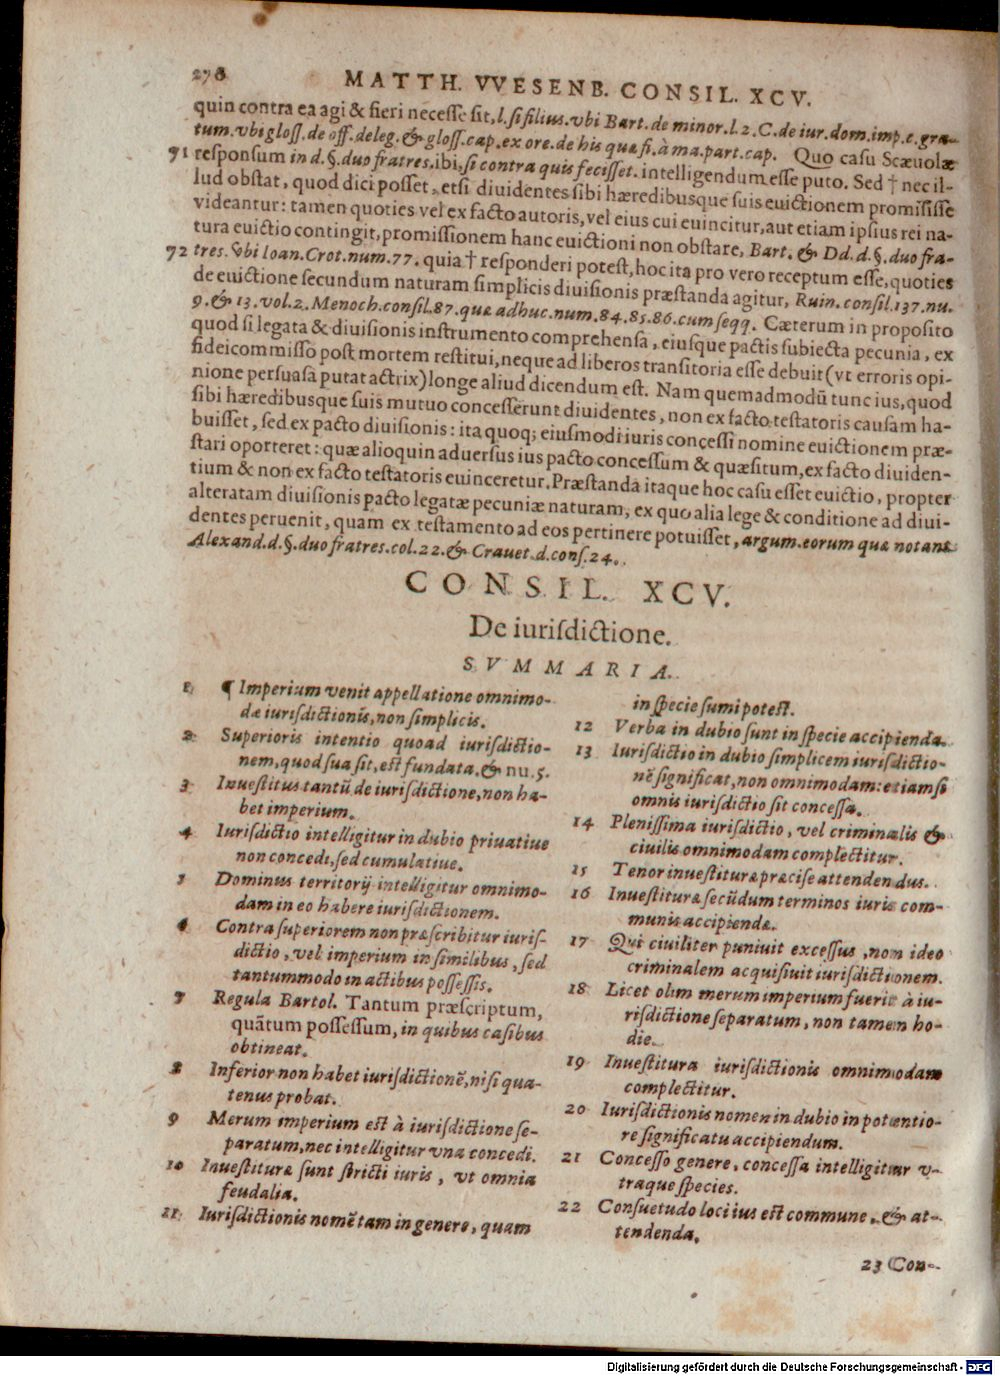 278 MATTH. VVESENB. CONSIL. XCV.
quin contra ea agi & fieri necesse sit, l. si filius. vbi Bart. de minor. l. 2. C. de iur. dom. imp. c. gra-
tum. vbi gloss. de off. deleg. & gloss. cap. ex ore. de his quæ fi. à ma. part. cap. Quo casu Scæuolæ
71 responsum in d. §. duo fratres. ibi, si contra quis fecisset. intelligendum esse puto. Sed † nec il-
lud obstat, quod dici posset, etsi diuidentes sibi hæredibusque suis euictionem promisisse
videantur: tamen quoties vel ex facto autoris, vel eius cui euincitur, aut etiam ipsius rei na-
tura euictio contingit, promissionem hanc euictioni non obstare, Bart. & Dd. d. §. duo fra-
72 tres. Vbi Ioan. Crot. num. 77. quia † responderi potest, hoc ita pro vero receptum esse, quoties
de euictione secundum naturam simplicis diuisionis præstanda agitur, Ruin. consil. 137. nu.
9. & 13. vol. 2. Menoch. consil. 87. quæ adhuc. num. 84. 85. 86. cum seqq. Cæterum in proposito
quod si legata & diuisionis instrumento comprehensa, eiusque pactis subiecta pecunia, ex
fideicommisso post mortem restitui, neque ad liberos transitoria esse debuit (vt erroris opi-
nione persuasa putat actrix) longe aliud dicendum est. Nam quemadmodū tunc ius, quod
sibi hæredibusque suis mutuo concesserunt diuidentes, non ex facto testatoris causam ha-
buisset, sed ex pacto diuisionis: ita quoq; eiusmodi iuris concessi nomine euictionem præ-
stari oporteret: quæ alioquin aduersus ius pacto concessum & quæsitum, ex facto diuiden-
tium & non ex facto testatoris euinceretur. Præstanda itaque hoc casu esset euictio, propter
alteratam diuisionis pacto legatæ pecuniæ naturam, ex quo alia lege & conditione ad diui-
dentes peruenit, quam ex testamento ad eos pertinere potuisset, argum. eorum quæ notant
Alexand. d. §. duo fratres. col. 22. & Crauet. d. cons. 24.
CONSIL. XCV.
De iurisdictione.
SVMMARIA.
1 ¶ Imperium venit appellatione omnimo-
dæ iurisdictionis, non simplicis.
2 Superioris intentio quoad iurisdictio-
nem, quod sua sit, est fundata. & nu. 5.
3 Inuestitus tantū de iurisdictione, non ha-
bet imperium.
4 Iurisdictio intelligitur in dubio priuatiue
non concedi, sed cumulatiue.
5 Dominus territorij intelligitur omnimo-
dam in eo habere iurisdictionem.
6 Contra superiorem non præscribitur iuris-
dictio, vel imperium in similibus, sed
tantummodo in actibus possessis.
7 Regula Bartol. Tantum præscriptum,
quātum possessum, in quibus casibus
obtineat.
8 Inferior non habet iurisdictionē, nisi qua-
tenus probat.
9 Merum imperium est à iurisdictione se-
paratum, nec intelligitur vna concedi.
10 Inuestituræ sunt stricti iuris, vt omnia
feudalia.
11 Iurisdictionis nomē tam in genere, quam
in specie sumi potest.
12 Verba in dubio sunt in specie accipienda.
13 Iurisdictio in dubio simplicem iurisdictio-
nē significat, non omnimodam: etiamsi
omnis iurisdictio sit concessa.
14 Plenissima iurisdictio, vel criminalis &
ciuilis omnimodam complectitur.
15 Tenor inuestituræ præcise attendendus.
16 Inuestituræ secūdum terminos iuris com-
munis accipiendæ.
17 Qui ciuiliter puniuit excessus, non ideo
criminalem acquisiuit iurisdictionem.
18 Licet olim merum imperium fuerit à iu-
risdictione separatum, non tamen ho-
die.
19 Inuestitura iurisdictionis omnimodam
complectitur.
20 Iurisdictionis nomen in dubio in potentio-
re significatu accipiendum.
21 Concesso genere, concessa intelligitur v-
traque species.
22 Consuetudo loci ius est commune, & at-
tendenda.
23 Con-
Digitalisierung gefördert durch die Deutsche Forschungsgemeinschaft - DFG